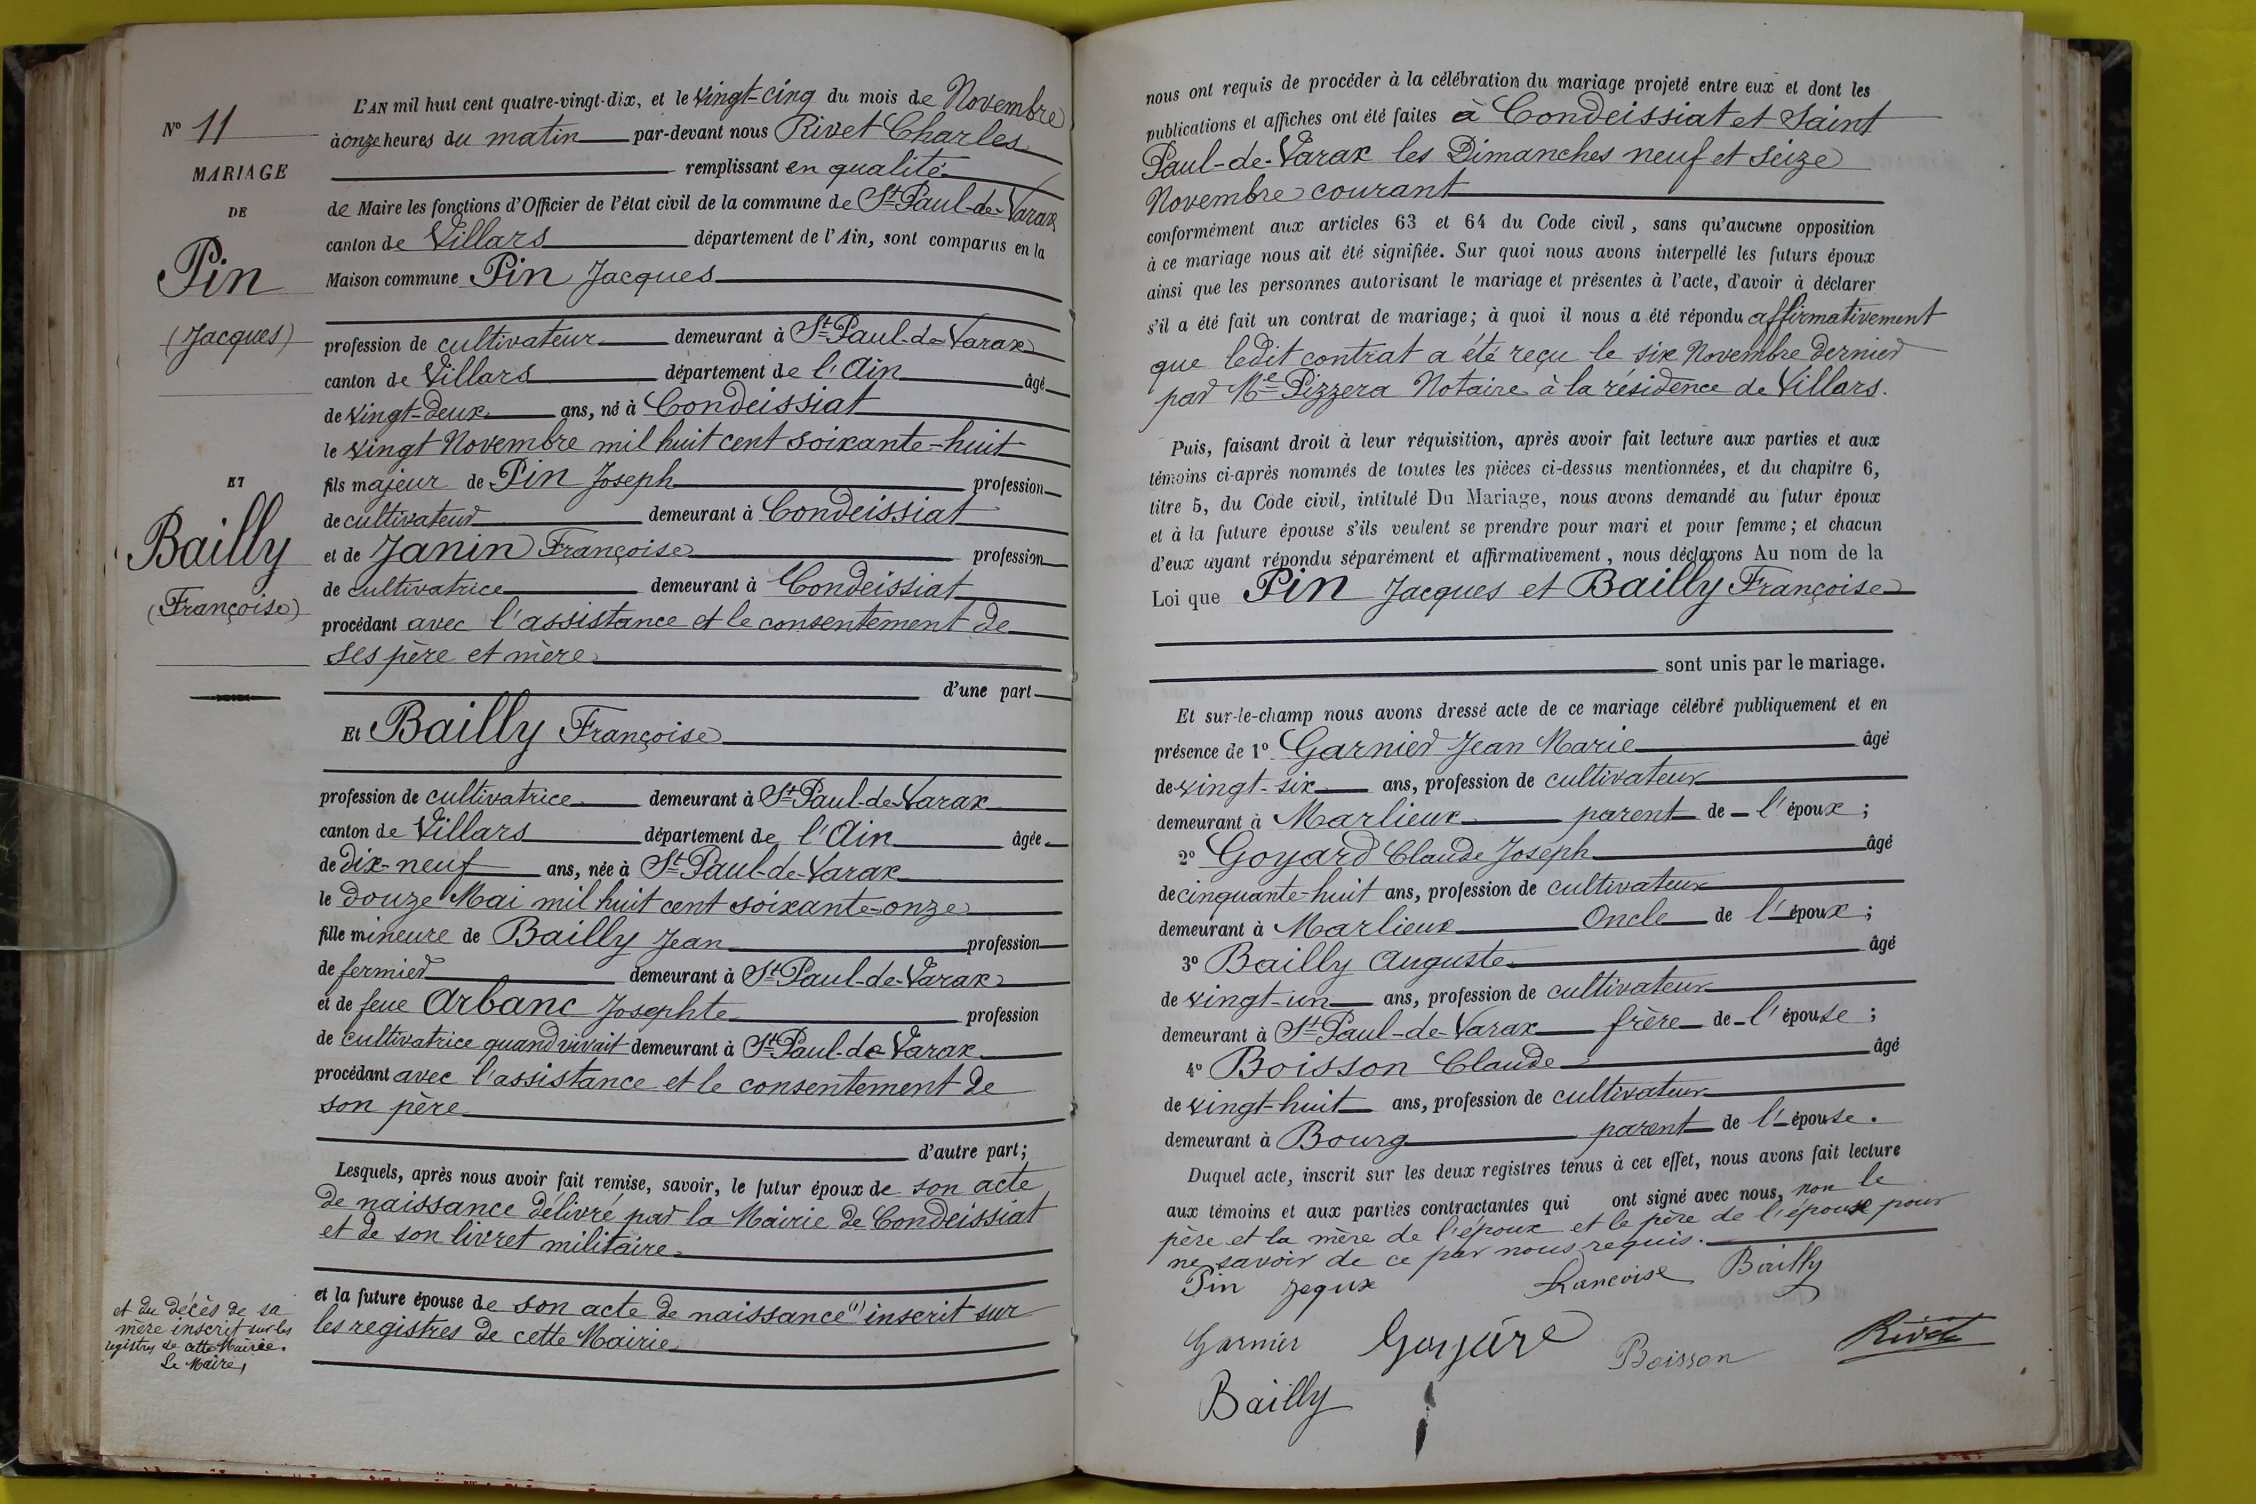 N° 11
MARIAGE
DE
Pin
(Jacques)
ET
Bailly
(Françoise)
L'AN mil huit cent quatre-vingt-dix, et le vingt-cinq du mois de Novembre
à onze heures du matin par-devant nous Rivet Charles
remplissant en qualité
de Maire les fonctions d'Officier de l'état civil de la commune de St Paul-de-Varax
canton de Villars département de l'Ain, sont comparus en la
Maison commune Pin Jacques
profession de cultivateur demeurant à St Paul-de-Varax
canton de Villars département de l'Ain âgé
de vingt-deux ans, né à Condeissiat
le vingt Novembre mil huit cent soixante-huit
fils majeur de Pin Joseph profession
de cultivateur demeurant à Condeissiat
et de Janin Françoise profession
de cultivatrice demeurant à Condeissiat
procédant avec l'assistance et le consentement de
ses père et mère
d'une part
Et Bailly Françoise
profession de cultivatrice demeurant à St Paul-de-Varax
canton de Villars département de l'Ain âgée
de dix-neuf ans, née à St Paul-de-Varax
le douze Mai mil huit cent soixante-onze
fille mineure de Bailly Jean profession
de fermier demeurant à St Paul-de-Varax
et de feue Arbanc Josephte profession
de cultivatrice quand vivait demeurant à St Paul-de-Varax
procédant avec l'assistance et le consentement de
son père
d'autre part;
Lesquels, après nous avoir fait remise, savoir, le futur époux de son acte
de naissance délivré par la Mairie de Condeissiat
et de son livret militaire
et la future épouse de son acte de naissance (1) inscrit sur
les registres de cette Mairie
et du décès de sa
mère inscrit sur les
registres de cette Mairie.
Le Maire,
nous ont requis de procéder à la célébration du mariage projeté entre eux et dont les
publications et affiches ont été faites à Condeissiat et Saint
Paul-de-Varax les Dimanches neuf et seize
Novembre courant
conformément aux articles 63 et 64 du Code civil, sans qu'aucune opposition
à ce mariage nous ait été signifiée. Sur quoi nous avons interpellé les futurs époux
ainsi que les personnes autorisant le mariage et présentes à l'acte, d'avoir à déclarer
s'il a été fait un contrat de mariage; à quoi il nous a été répondu affirmativement
que ledit contrat a été reçu le six Novembre dernier
par Me Pizzera Notaire à la résidence de Villars.
Puis, faisant droit à leur réquisition, après avoir fait lecture aux parties et aux
témoins ci-après nommés de toutes les pièces ci-dessus mentionnées, et du chapitre 6,
titre 5, du Code civil, intitulé Du Mariage, nous avons demandé au futur époux
et à la future épouse s'ils veulent se prendre pour mari et pour femme; et chacun
d'eux ayant répondu séparément et affirmativement, nous déclarons Au nom de la
Loi que Pin Jacques et Bailly Françoise
sont unis par le mariage.
Et sur-le-champ nous avons dressé acte de ce mariage célébré publiquement et en
présence de 1° Garnier Jean Marie âgé
de vingt-six ans, profession de cultivateur
demeurant à Marlieux parent de l'époux;
2° Goyard Claude Joseph âgé
de cinquante-huit ans, profession de cultivateur
demeurant à Marlieux Oncle de l'époux;
3° Bailly Auguste âgé
de vingt-un ans, profession de cultivateur
demeurant à St Paul-de-Varax frère de l'épouse;
4° Boisson Claude âgé
de vingt-huit ans, profession de cultivateur
demeurant à Bourg parent de l'épouse.
Duquel acte, inscrit sur les deux registres tenus à cet effet, nous avons fait lecture
aux témoins et aux parties contractantes qui ont signé avec nous, non le
père et la mère de l'époux et le père de l'épouse pour
ne savoir de ce par nous requis.
Pin Jequx Francoise Bailly
Garnier Goyard Boisson Rivet
Bailly